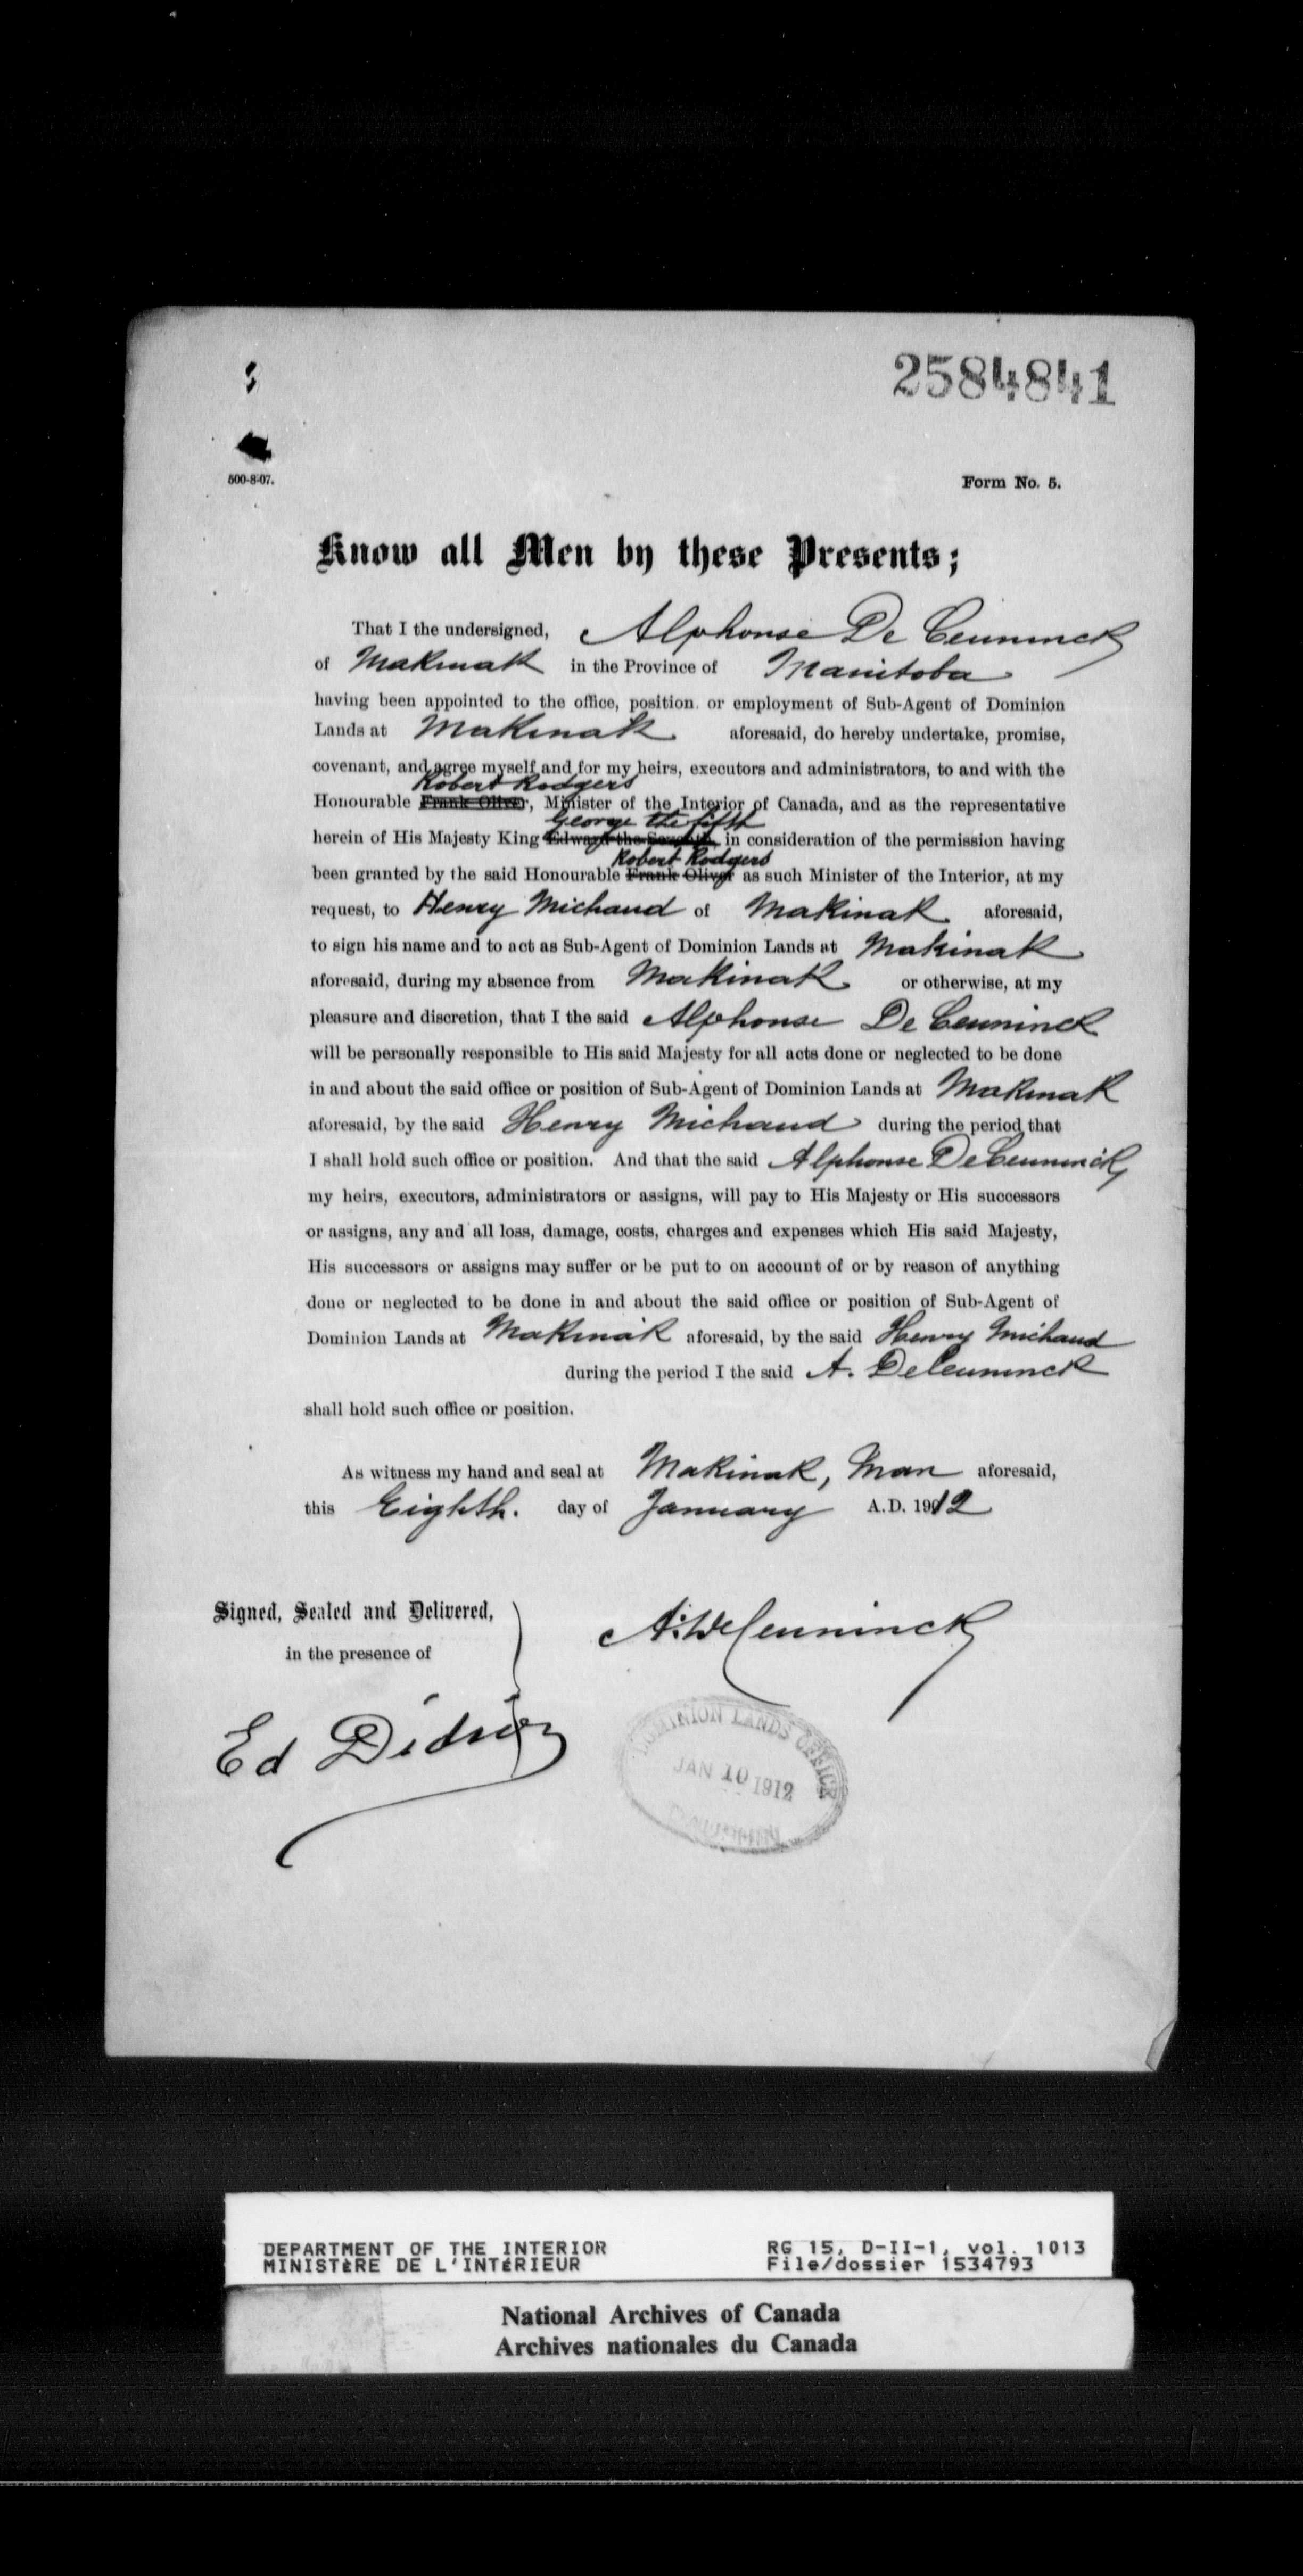 2584841
500-8-07.
Form No. 5.
Know all Men by these Presents;
That I the undersigned, Alphonse De Ceuninck
of Makinak in the Province of Manitoba
having been appointed to the office, position or employment of Sub-Agent of Dominion
Lands at Makinak aforesaid, do hereby undertake, promise,
covenant, and agree myself and for my heirs, executors and administrators, to and with the
Robert Rodgers
Honourable Frank Oliver, Minister of the Interior of Canada, and as the representative
George the fifth
herein of His Majesty King Edward the Seventh, in consideration of the permission having
Robert Rodgers
been granted by the said Honourable Frank Oliver as such Minister of the Interior, at my
request, to Henry Michaud of Makinak aforesaid,
to sign his name and to act as Sub-Agent of Dominion Lands at Makinak
aforesaid, during my absence from Makinak or otherwise, at my
pleasure and discretion, that I the said Alphonse De Ceuninck
will be personally responsible to His said Majesty for all acts done or neglected to be done
in and about the said office or position of Sub-Agent of Dominion Lands at Makinak
aforesaid, by the said Henry Michaud during the period that
I shall hold such office or position. And that the said Alphonse De Ceuninck,
my heirs, executors, administrators or assigns, will pay to His Majesty or His successors
or assigns, any and all loss, damage, costs, charges and expenses which His said Majesty,
His successors or assigns may suffer or be put to on account of or by reason of anything
done or neglected to be done in and about the said office or position of Sub-Agent of
Dominion Lands at Makinak aforesaid, by the said Henry Michaud
during the period I the said A. DeCeuninck
shall hold such office or position.
As witness my hand and seal at Makinak, Man aforesaid,
this Eighth. day of January A.D. 1912
Signed, Sealed and Delivered,
in the presence of
A. DeCeuninck
Ed Didion
DOMINION LANDS OFFICE
JAN 10 1912
DAUPHIN
DEPARTMENT OF THE INTERIOR
MINISTÈRE DE L'INTÉRIEUR
RG 15, D-II-1, vol. 1013
File/dossier 1534793
National Archives of Canada
Archives nationales du Canada